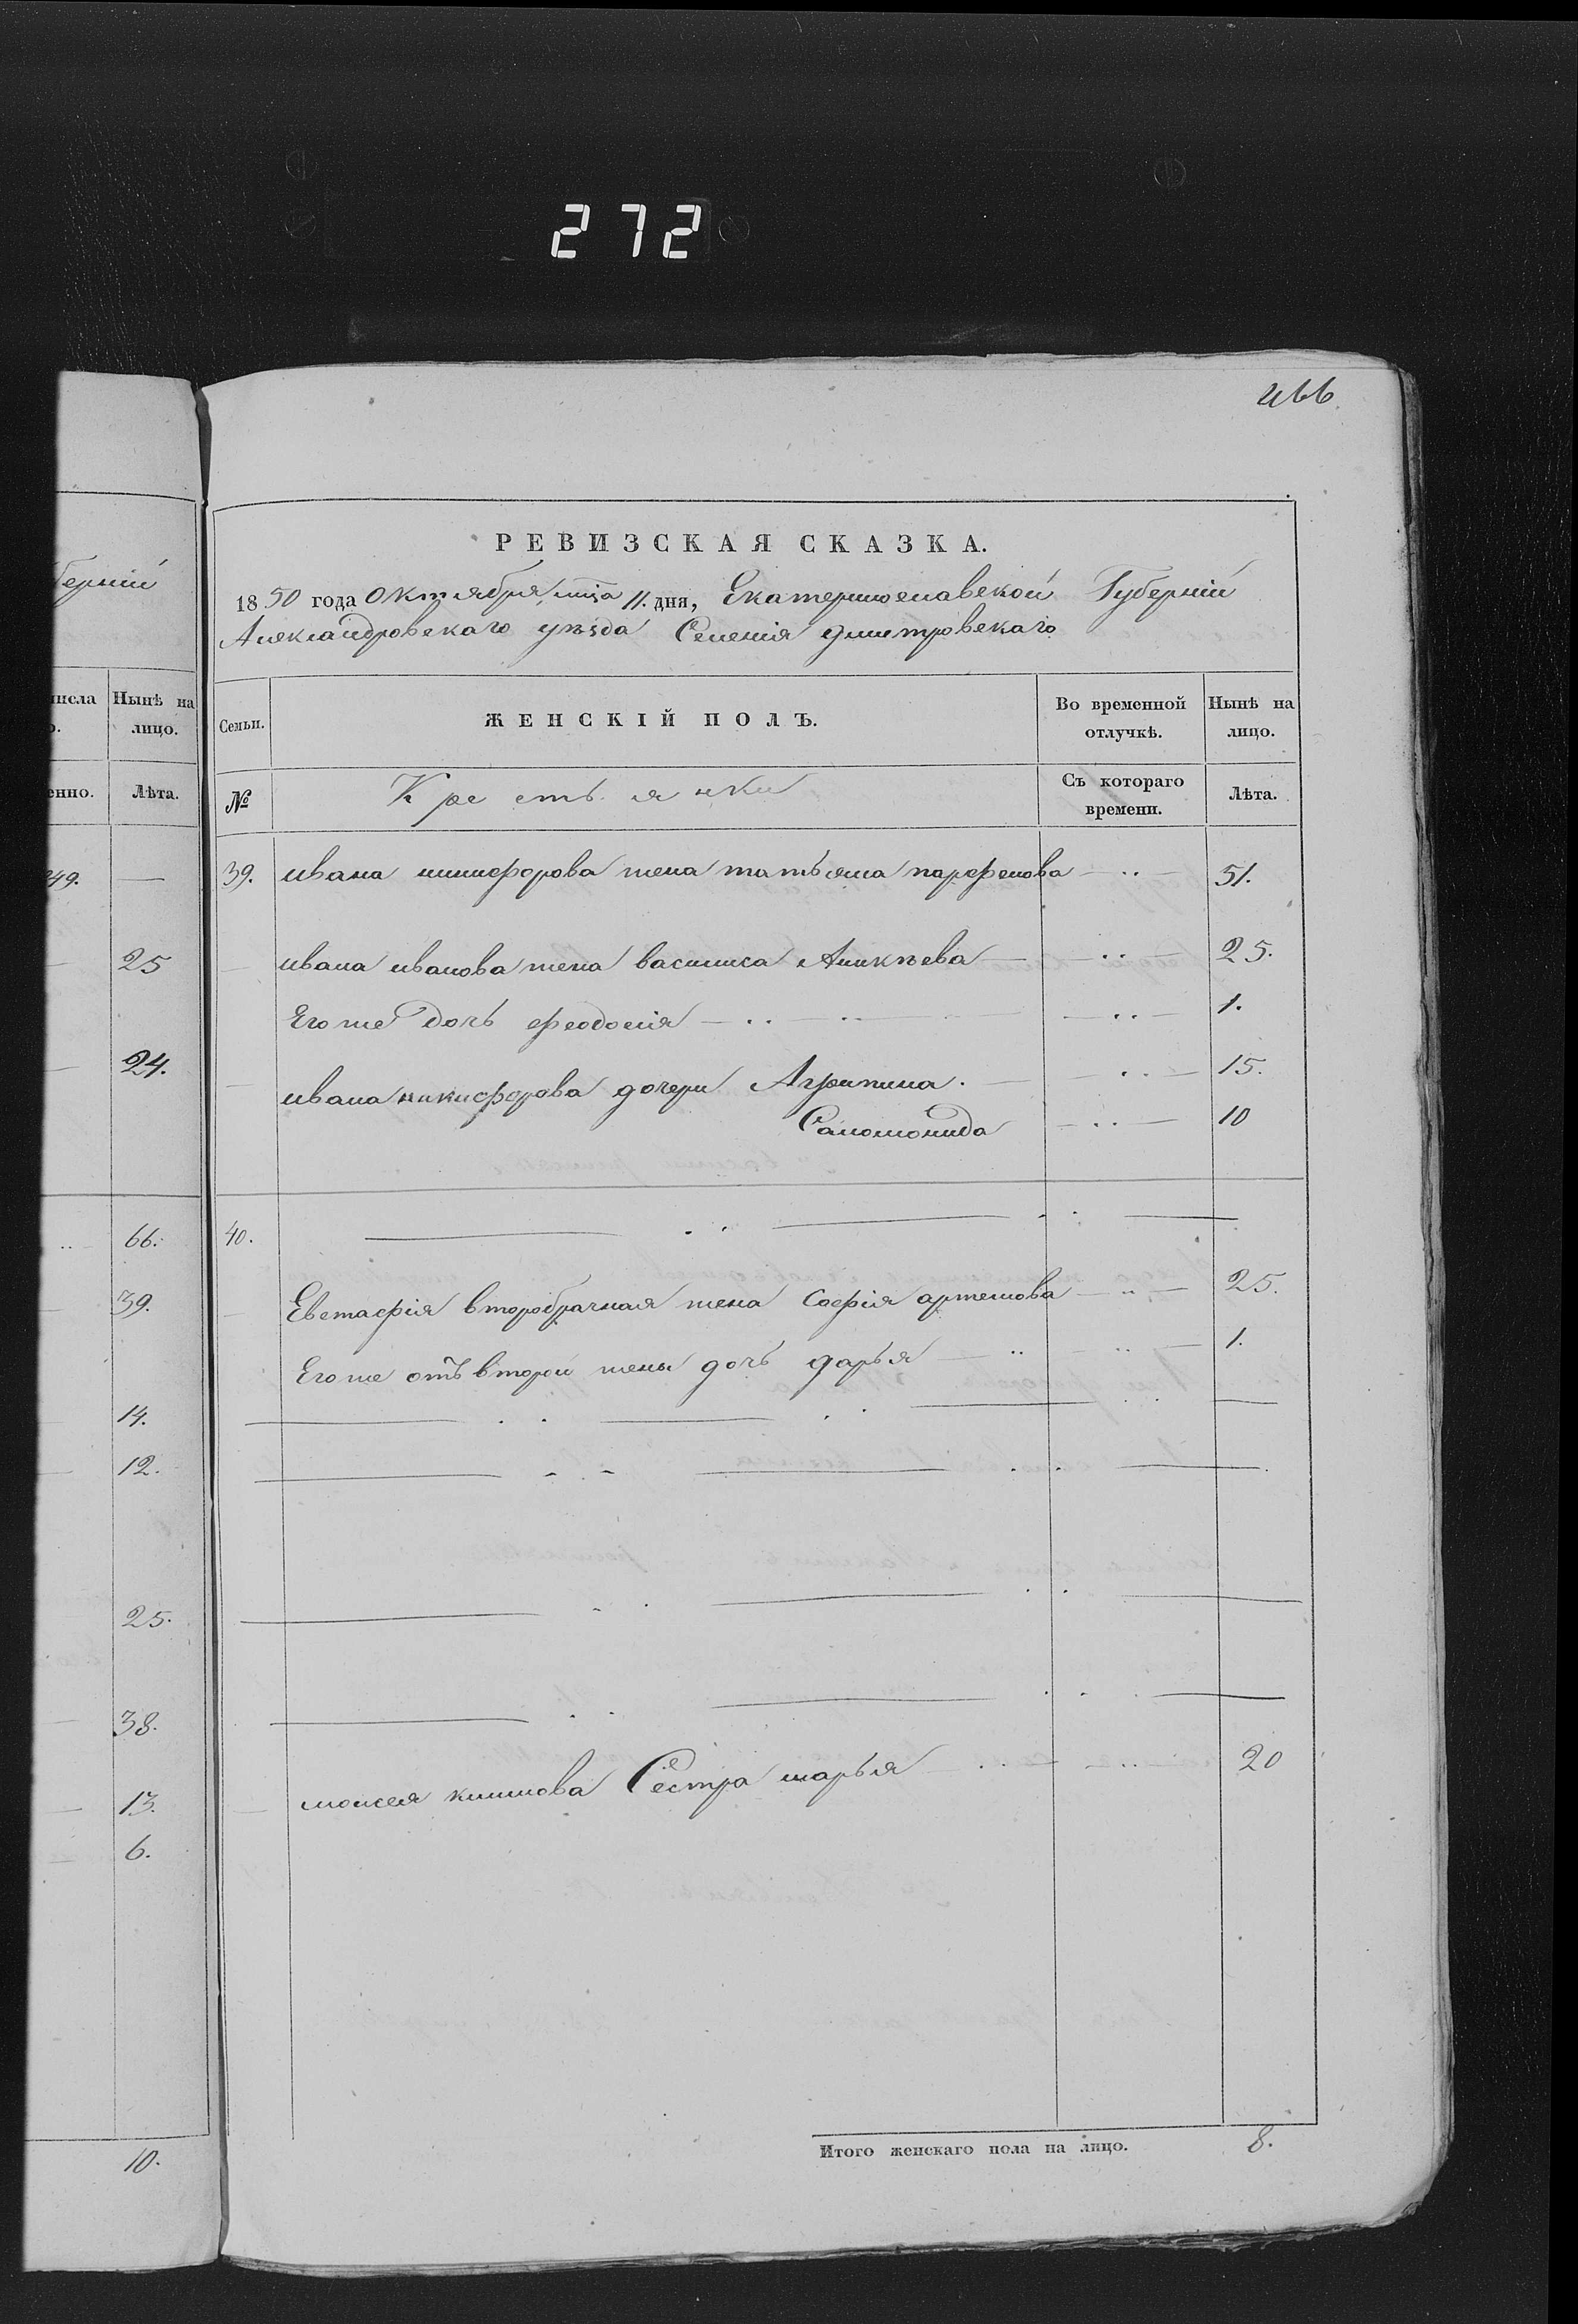 272
466
РЕВИЗСКАЯ СКАЗКА.
1850 года Октября мца 11. дня, Екатеринославской Губерніи
Александровскаго уѣзда Селенія дмитровскаго
берніи
исла
Нынѣ на лицо.
енно.
Лѣта.
Семьи.
ЖЕНСКІЙ ПОЛЪ.
Во временной отлучкѣ.
Нынѣ на лицо.
№
Крестьянки
Съ котораго времени.
Лѣта.
249. —
39. ивана никифорова жена татьяна парфенова — .. — 51.
25
ивана иванова жена василиса Аникѣева — .. — 25.
Егоже дочь феодосія — .. — .. — .. — 1.
24.
ивана никифорова дочери Агрипина. — .. — 15.
Саломонида — .. — 10
66.
40.
39.
Евстафія второбрачная жена Софія артемова — .. — 25.
Егоже отъ второй жены дочь дарья — .. — .. — 1.
14.
12.
25.
38.
моисея климова Сестра марья — .. — .. — 20
13.
6.
Итого женскаго пола на лицо. 8.
10.